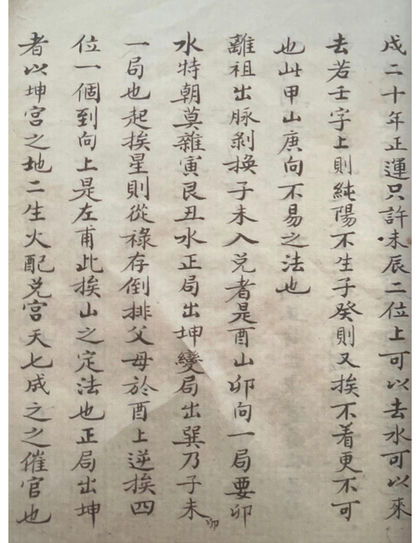 戌二十年正運只許未辰二位上可以去水可以來
去若壬字上則純陽不生子癸則又挨不着更不可
也此甲山庚向不易之法也
離祖出脉剝換子未入兌者是酉山卯向一局要卯
水特朝莫雜寅艮丑水正局出坤變局出巽乃子未卯
一局也起挨星則從祿存倒排父母於酉上逆挨四
位一個到向上是左甫此挨山之定法也正局出坤
者以坤宮之地二生火配兌宮天七成之之催官也